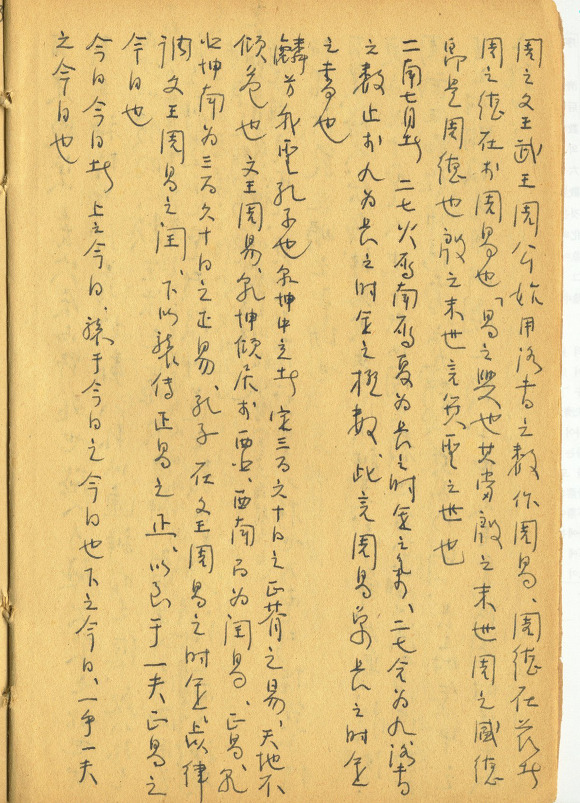 周之文王武王周公始用洛書之數作周易、周德在茲者
周之德在於周易也「易之興也其當殷之末世周之盛德
即是周德也殷之末世言 聖之世也
二南七月者 二七火 南 夏為長之時 之 、二七合為九洛書
之數止於九為長之時 之極數、此言周易 長之時
之書也
麟兮我聖孔子也乾坤中立者 定三百六十日之正朞之易、天地不
傾危也 文王周易、乾坤傾 於西北、西南 為閏易、正易、乾
北坤南為三百六十日之正易、孔子 在文王周易之時 律
文王周易之閏、下以 傳正易之正、以 于一夫正易之
今日也
今日今日者 上之今日、 于今日之今日也下之今日、一乎一夫
之今日也